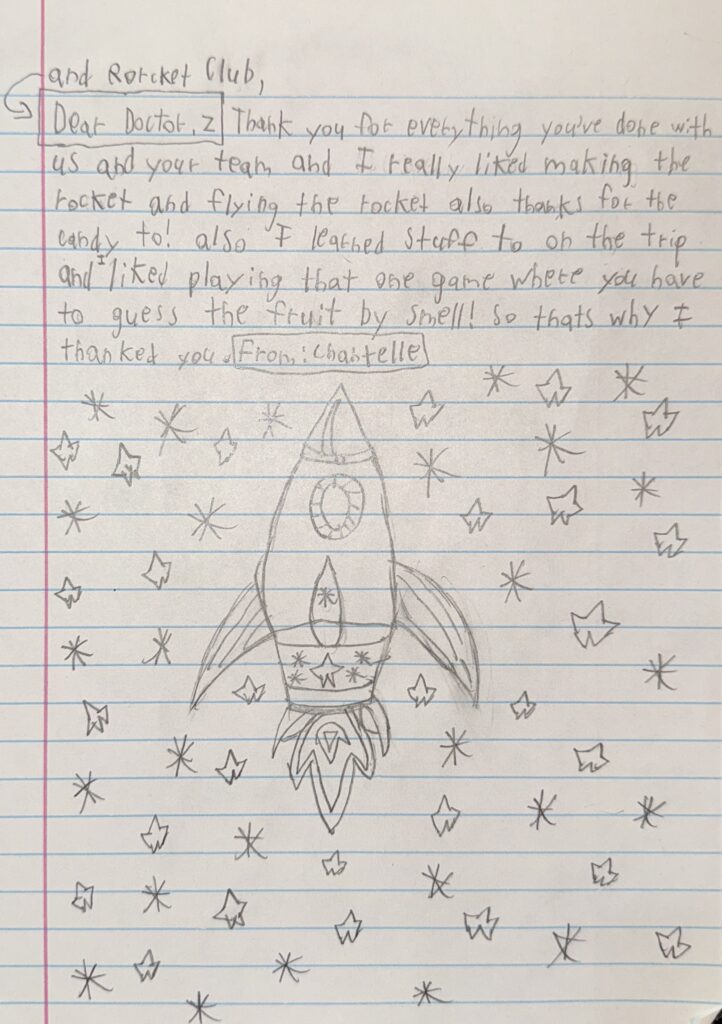 and Rorcket Club,
Dear Doctor. Z Thank you for everything you've done with
us and your team and I really liked making the
rocket and flying the rocket also thanks for the
candy to! also I learned stuff to on the trip
and I liked playing that one game where you have
to guess the fruit by smell! so thats why I
thanked you. From: Chantelle